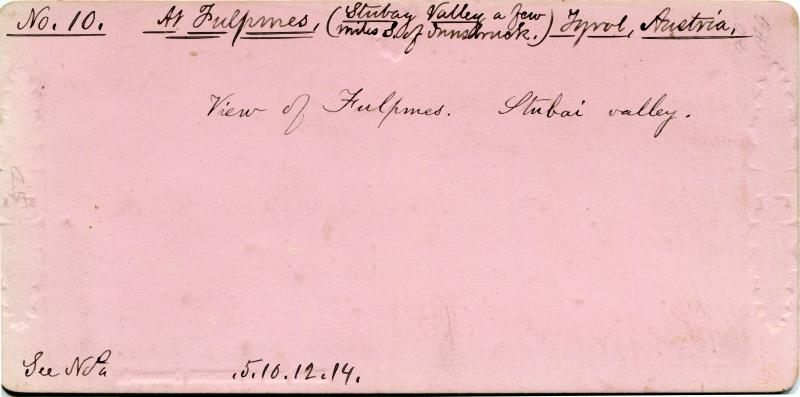 No. 10. At Fulpmes, (Stubay Valley a few miles S. of Innsbruck.) Tyrol, Austria.
View of Fulpmes. Stubai valley.
See Nos 5.10.12.14.